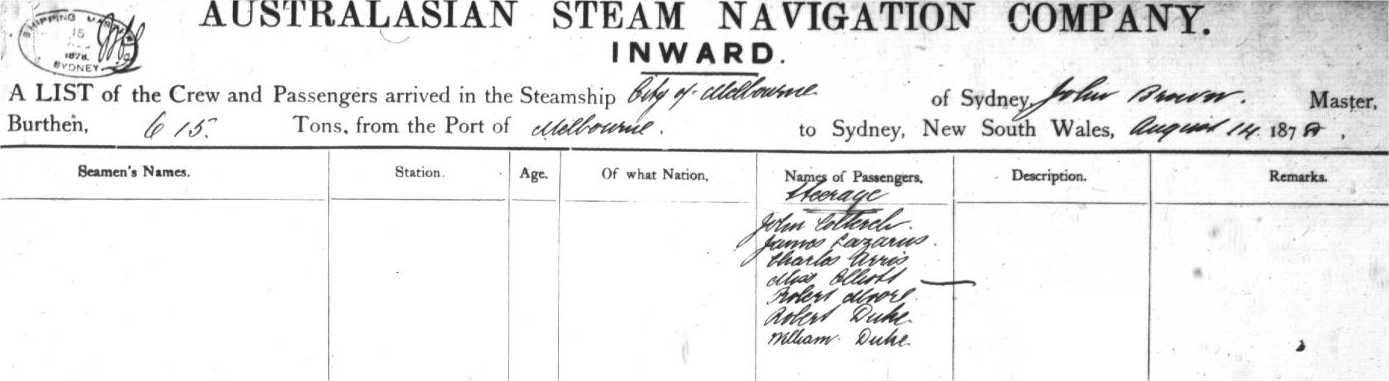 AUSTRALASIAN STEAM NAVIGATION COMPANY.
SHIPPING
15
1878
SYDNEY
INWARD.
A LIST of the Crew and Passengers arrived in the Steamship City of Melbourne of Sydney, John Brown. Master,
Burthen, 615. Tons, from the Port of Melbourne. to Sydney, New South Wales, August 14 1878.
Seamen's Names. Station. Age. Of what Nation, Names of Passengers, Description. Remarks.
Steerage
John
James Lazarus.
Charles Arris
Elliott
Robert Moore.
Robert Duke.
William Duke.